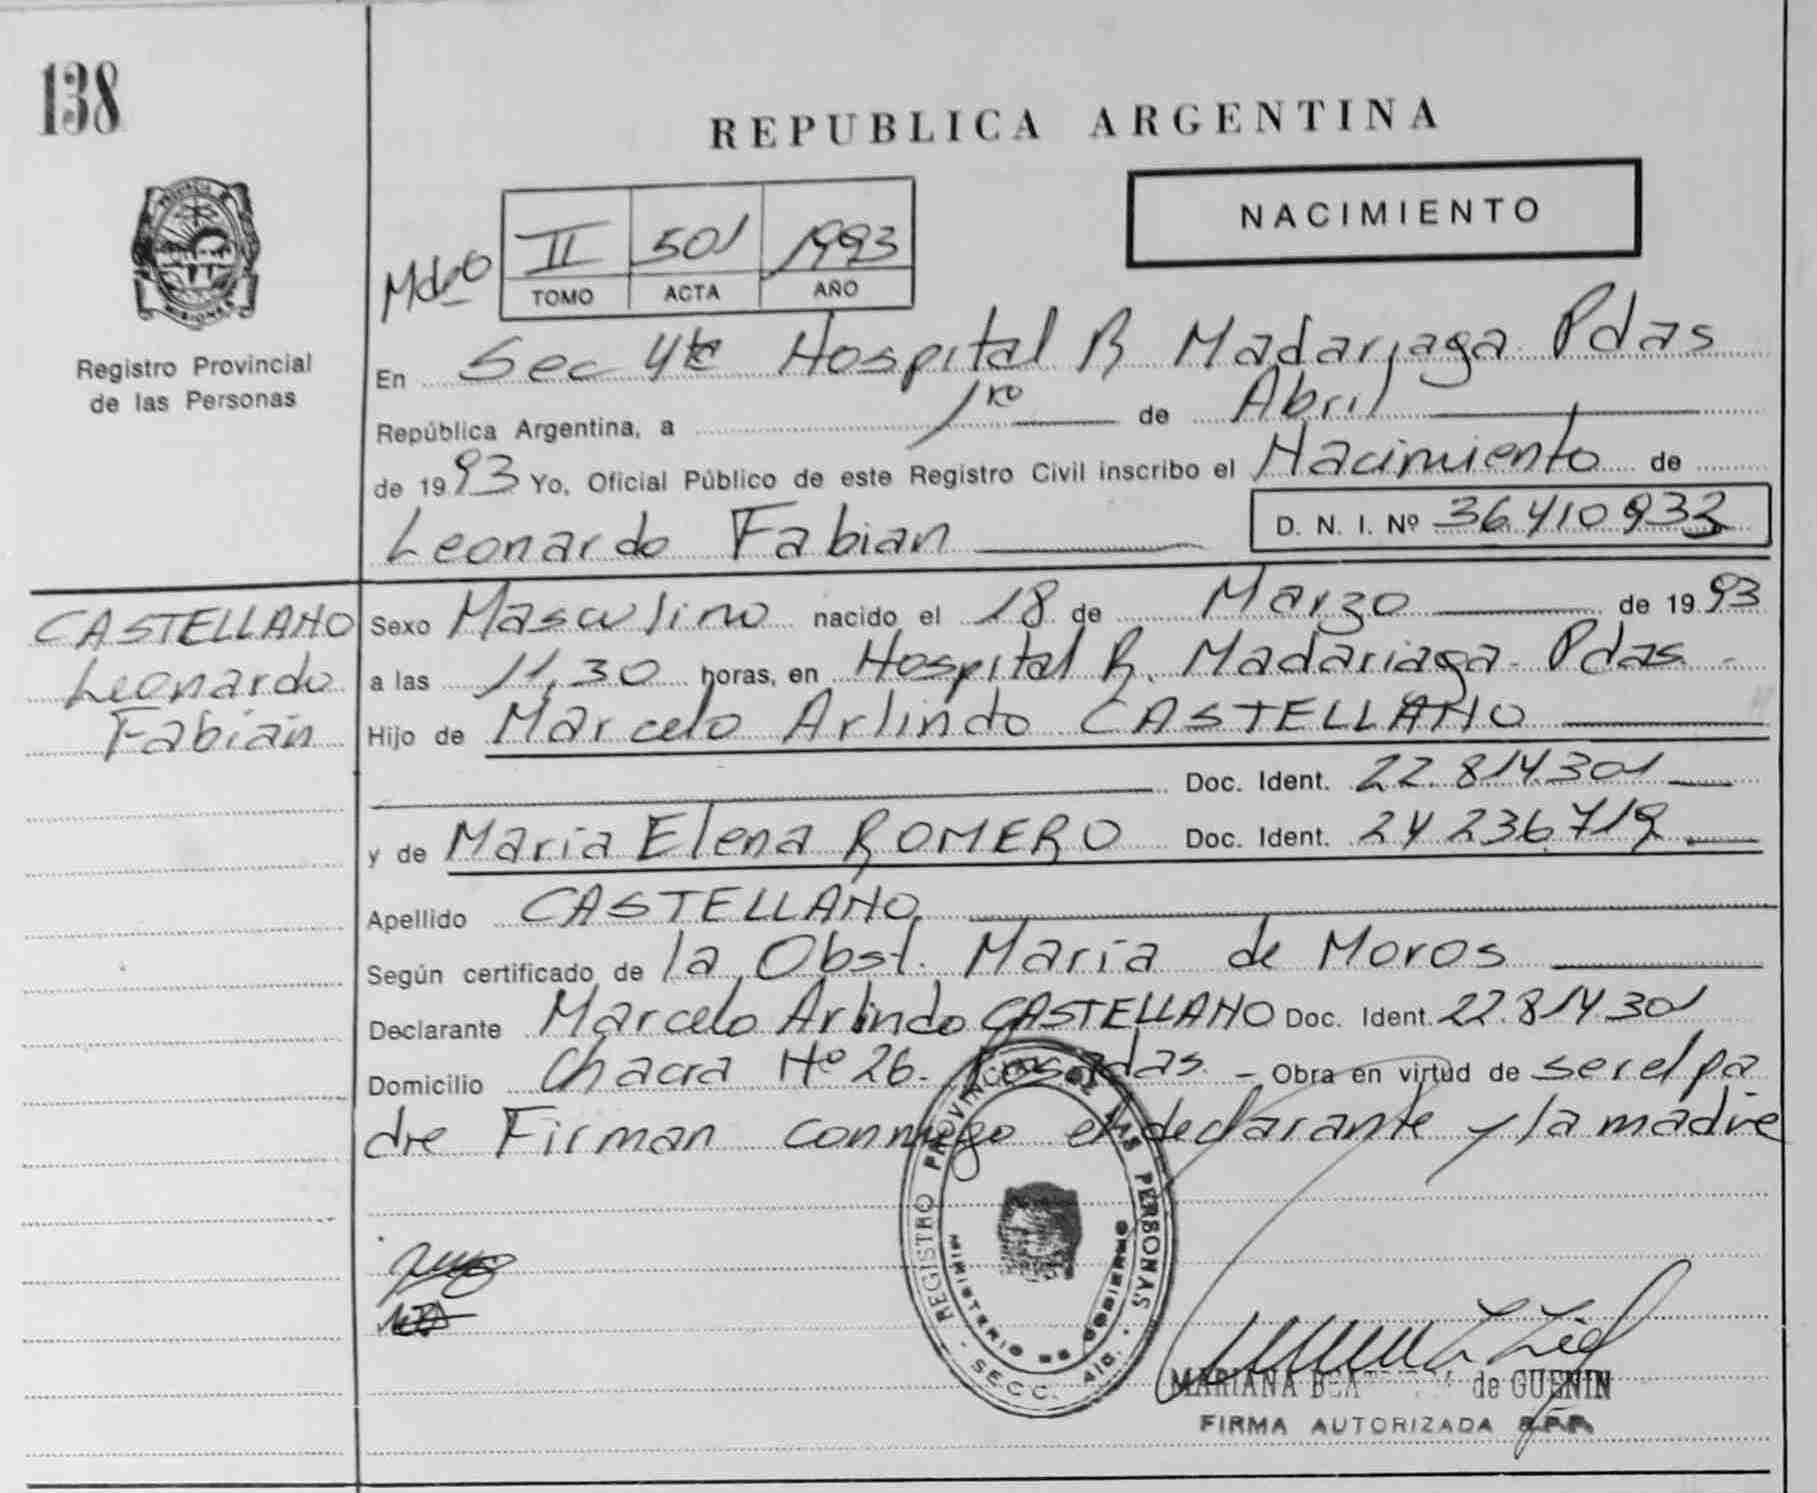 138
REPUBLICA ARGENTINA
NACIMIENTO
II 501 1993
TOMO ACTA AÑO
PROVINCIA DE MISIONES
Registro Provincial
de las Personas
En Sec 4ta Hospital R Madariaga Pdas
República Argentina, a 1ro de Abril
de 1993 Yo, Oficial Público de este Registro Civil inscribo el Nacimiento de
Leonardo Fabian D. N. I. Nº 36.410.933
CASTELLANO
Leonardo
Fabián
Sexo Masculino nacido el 18 de Marzo de 1993
a las 11,30 horas, en Hospital R. Madariaga - Pdas -
Hijo de Marcelo Arlindo CASTELLANO
Doc. Ident. 22.814.301
y de Maria Elena ROMERO Doc. Ident. 24.236.719
Apellido CASTELLANO
Según certificado de la Obst. Maria de Moros
Declarante Marcelo Arlindo CASTELLANO Doc. Ident. 22.814.301
Domicilio Chacra Nº 26. Posadas - Obra en virtud de ser el pa
dre Firman conmigo el declarante y la madre
REGISTRO PROVINCIAL DE LAS PERSONAS
MINISTERIO DE GOBIERNO
SECC. 4ta.
MARIANA de GUENIN
FIRMA AUTORIZADA R.P.P.